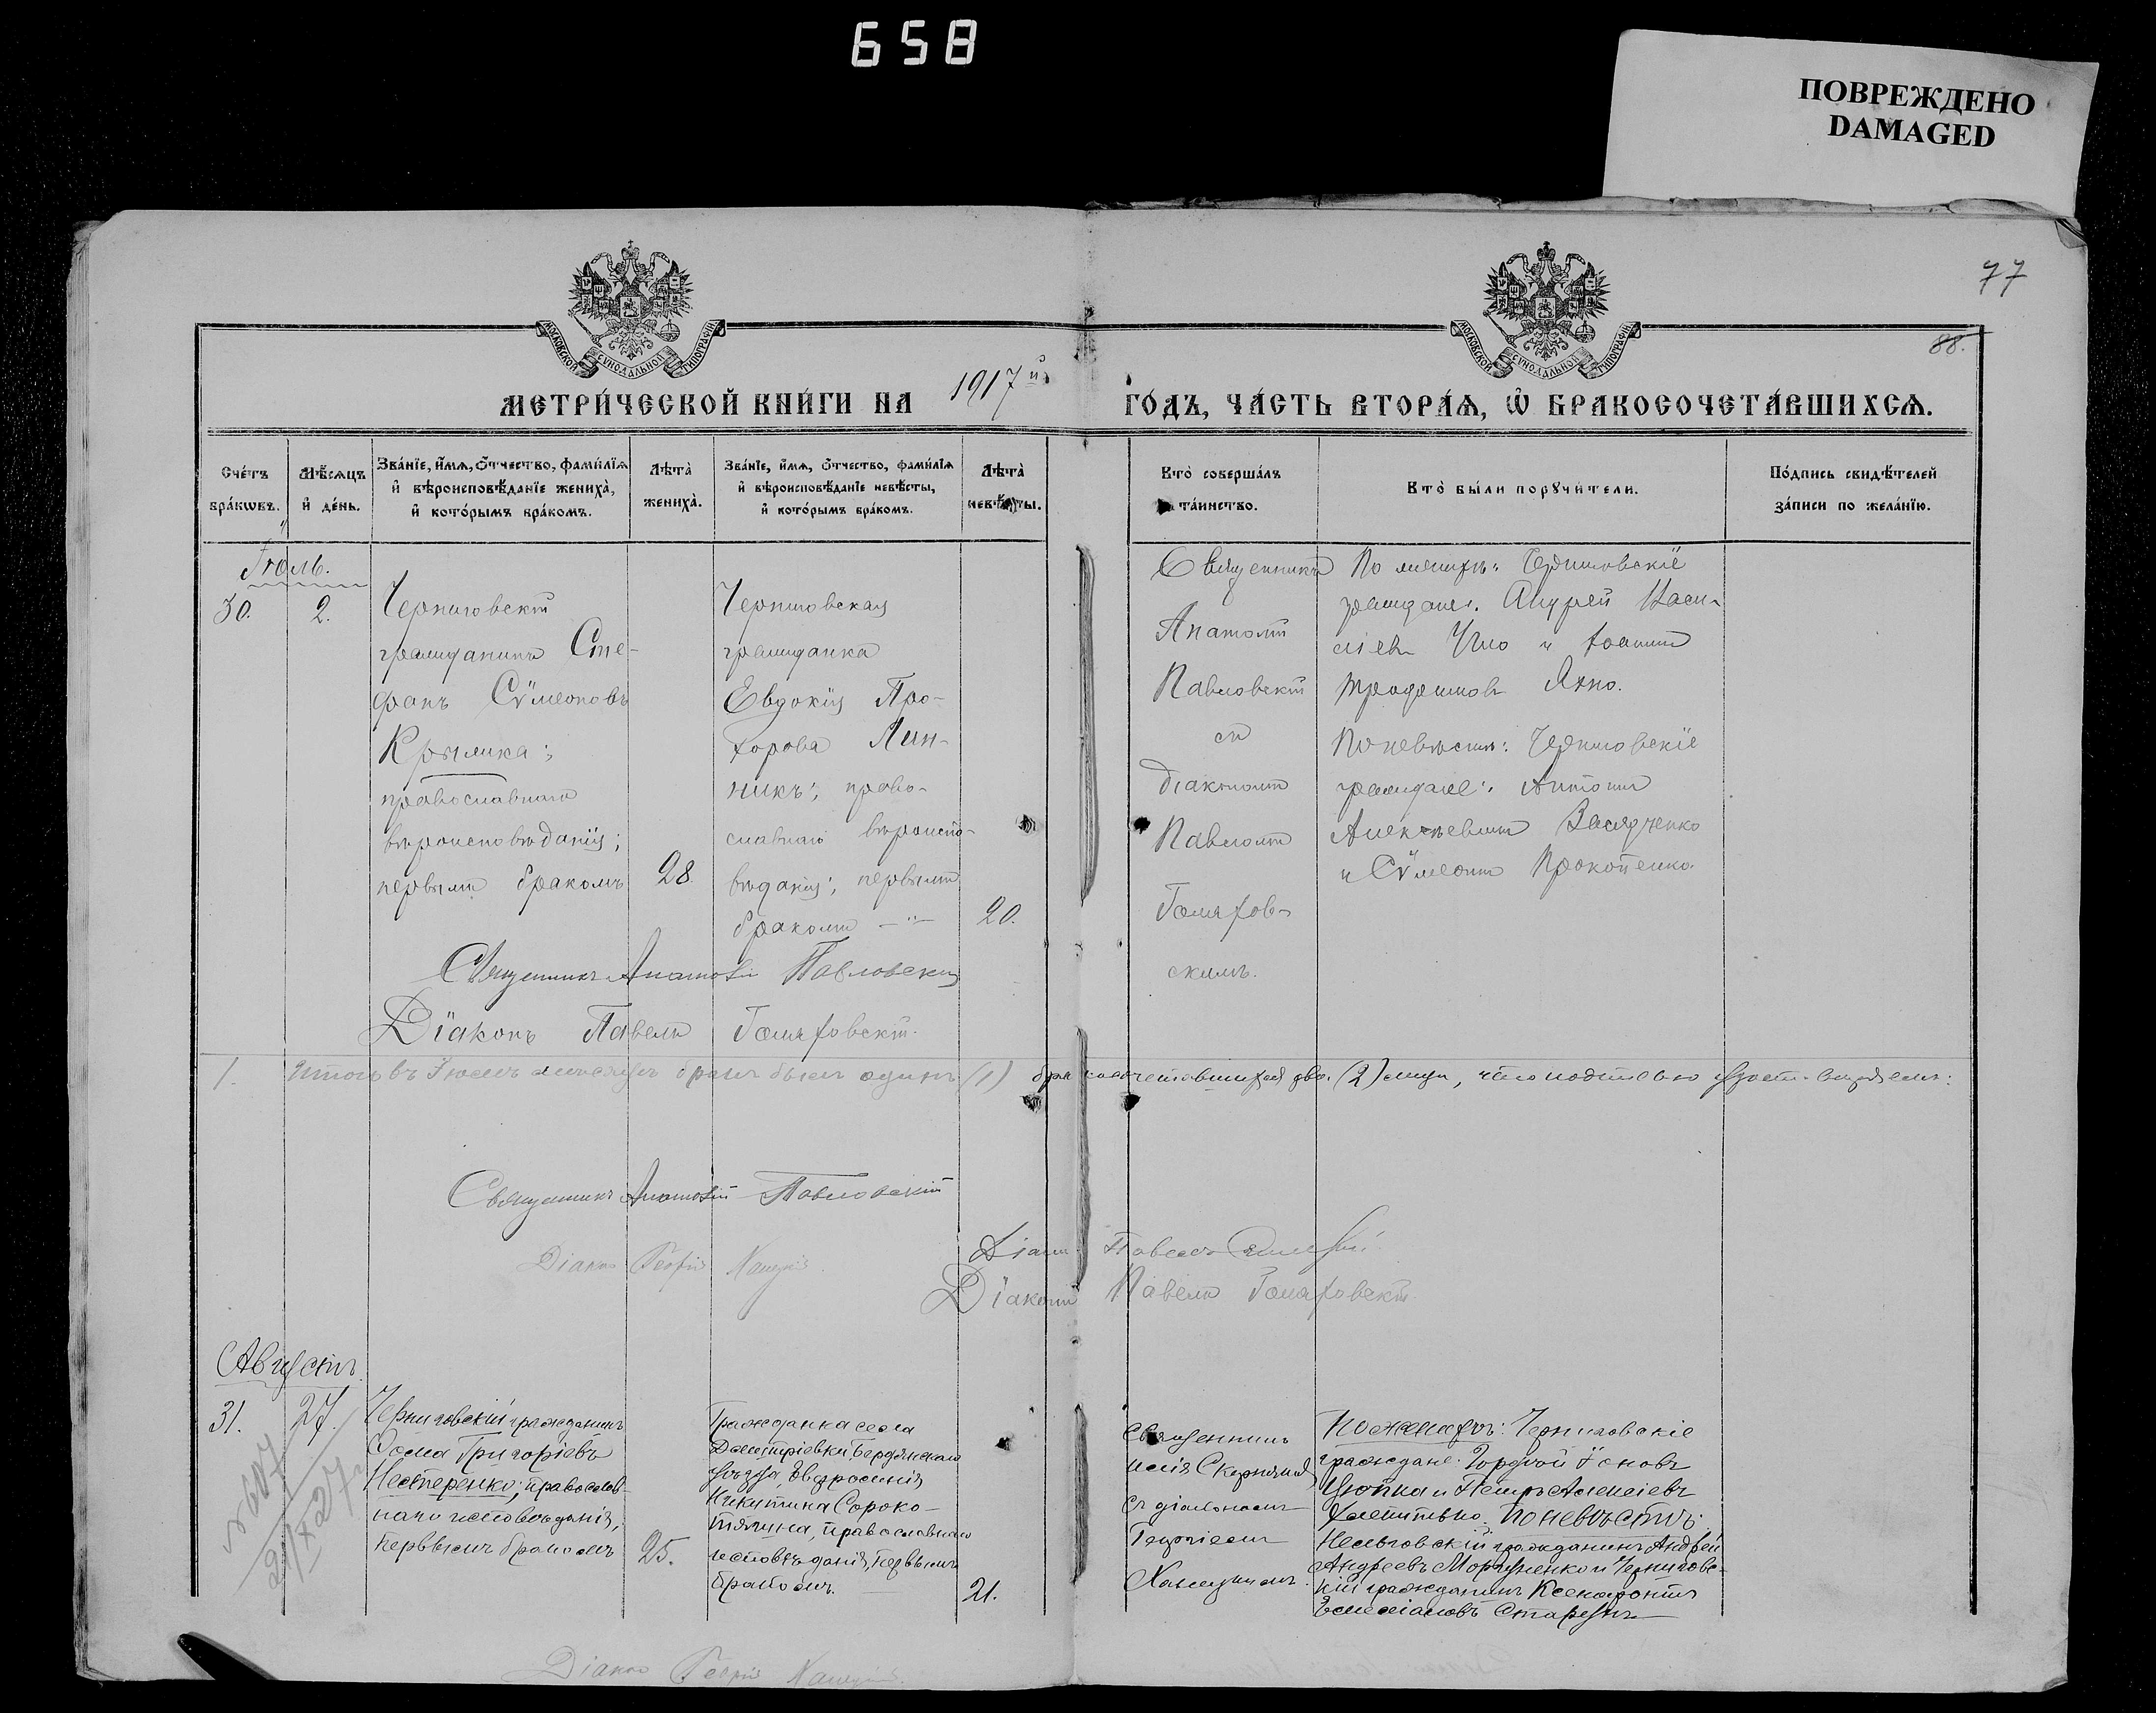 658
ПОВРЕЖДЕНО
DAMAGED
77
88.
МОСКОВСКОЙ СѴНОДАЛЬНОЙ ТИПОГРАФІИ
МОСКОВСКОЙ СѴНОДАЛЬНОЙ ТИПОГРАФІИ
МЕТРИ́ЧЕСКОЙ КНИ́ГИ НА 1917й ГО́ДЪ, ЧА́СТЬ ВТОРА́Ѧ, Ѽ БРАКОСОЧЕТА́ВШИХСѦ.
Сче́тъ
бра́кѡвъ.
Мѣ́сѧцъ
и҆ де́нь.
Зва́нїе, и҆́мѧ, ѻ҆́тчество, фами́лїѧ
и҆ вѣроисповѣ́данїе жениха̀,
и҆ кото́рымъ бра́комъ.
Лѣта̀
жениха̀.
Зва́нїе, и҆́мѧ, ѻ҆́тчество, фами́лїѧ
и҆ вѣроисповѣ́данїе невѣ́сты,
и҆ кото́рымъ бра́комъ.
Лѣта̀
невѣ́сты.
Кто̀ соверша́лъ
та́инство.
Кто̀ бы́ли порꙋчи́тели.
По́дпись свидѣ́телей
за́писи по жела́нїю.
Іюль.
30.
2.
Черниговскій
гражданинъ Сте-
фанъ Сѵмеоновъ
Крылика;
православнаго
вѣроисповѣданія;
первымъ бракомъ
28.
Черниговская
гражданка
Евдокія Про-
хорова Лин-
никъ; право-
славнаго вѣроиспо-
вѣданія; первымъ
бракомъ
20.
Священникъ
Анатолій
Павловскій
съ
діакономъ
Павломъ
Гомяхов-
скимъ.
По женихѣ: Черниговскіе
граждане: Андрей Васи-
ліевъ и Іоаннъ
Трофимовъ Яхно.
По невѣстѣ: Черниговскіе
граждане: Антоній
и Сѵмеонъ Прокопенко.
Священникъ Анатолій Павловскій
Діаконъ Павелъ Гомяховскій.
1. Итого въ Іюлѣ мѣсяцѣ бракъ былъ одинъ (1) сочетавшихся два (2) лица, что подписью удостовѣряемъ:
Священникъ Анатолій Павловскій
Діаконъ Георгій
Діаконъ Павелъ Гомяховскій.
Августъ.
31.
27.
Черниговскій гражданинъ
Ѳома Григоріевъ
Нестеренко; православ-
наго исповѣданія,
первымъ бракомъ
25.
Гражданка села
Дмитріевки Бердянскаго
уѣзда, Евфросинія
Никитина Сороко-
тягина, православнаго
исповѣданія, первымъ
бракомъ.
21.
Священникъ
Илія
съ діакономъ
Георгіемъ
По женихѣ: Черниговскіе
граждане: Гордѣй Іоновъ
и Петръ Алексіевъ
По невѣстѣ:
гражданинъ Андрей
Андреевъ и Черниговс-
кій гражданинъ Ксенофонтъ
Емеліановъ
Діаконъ Георгій